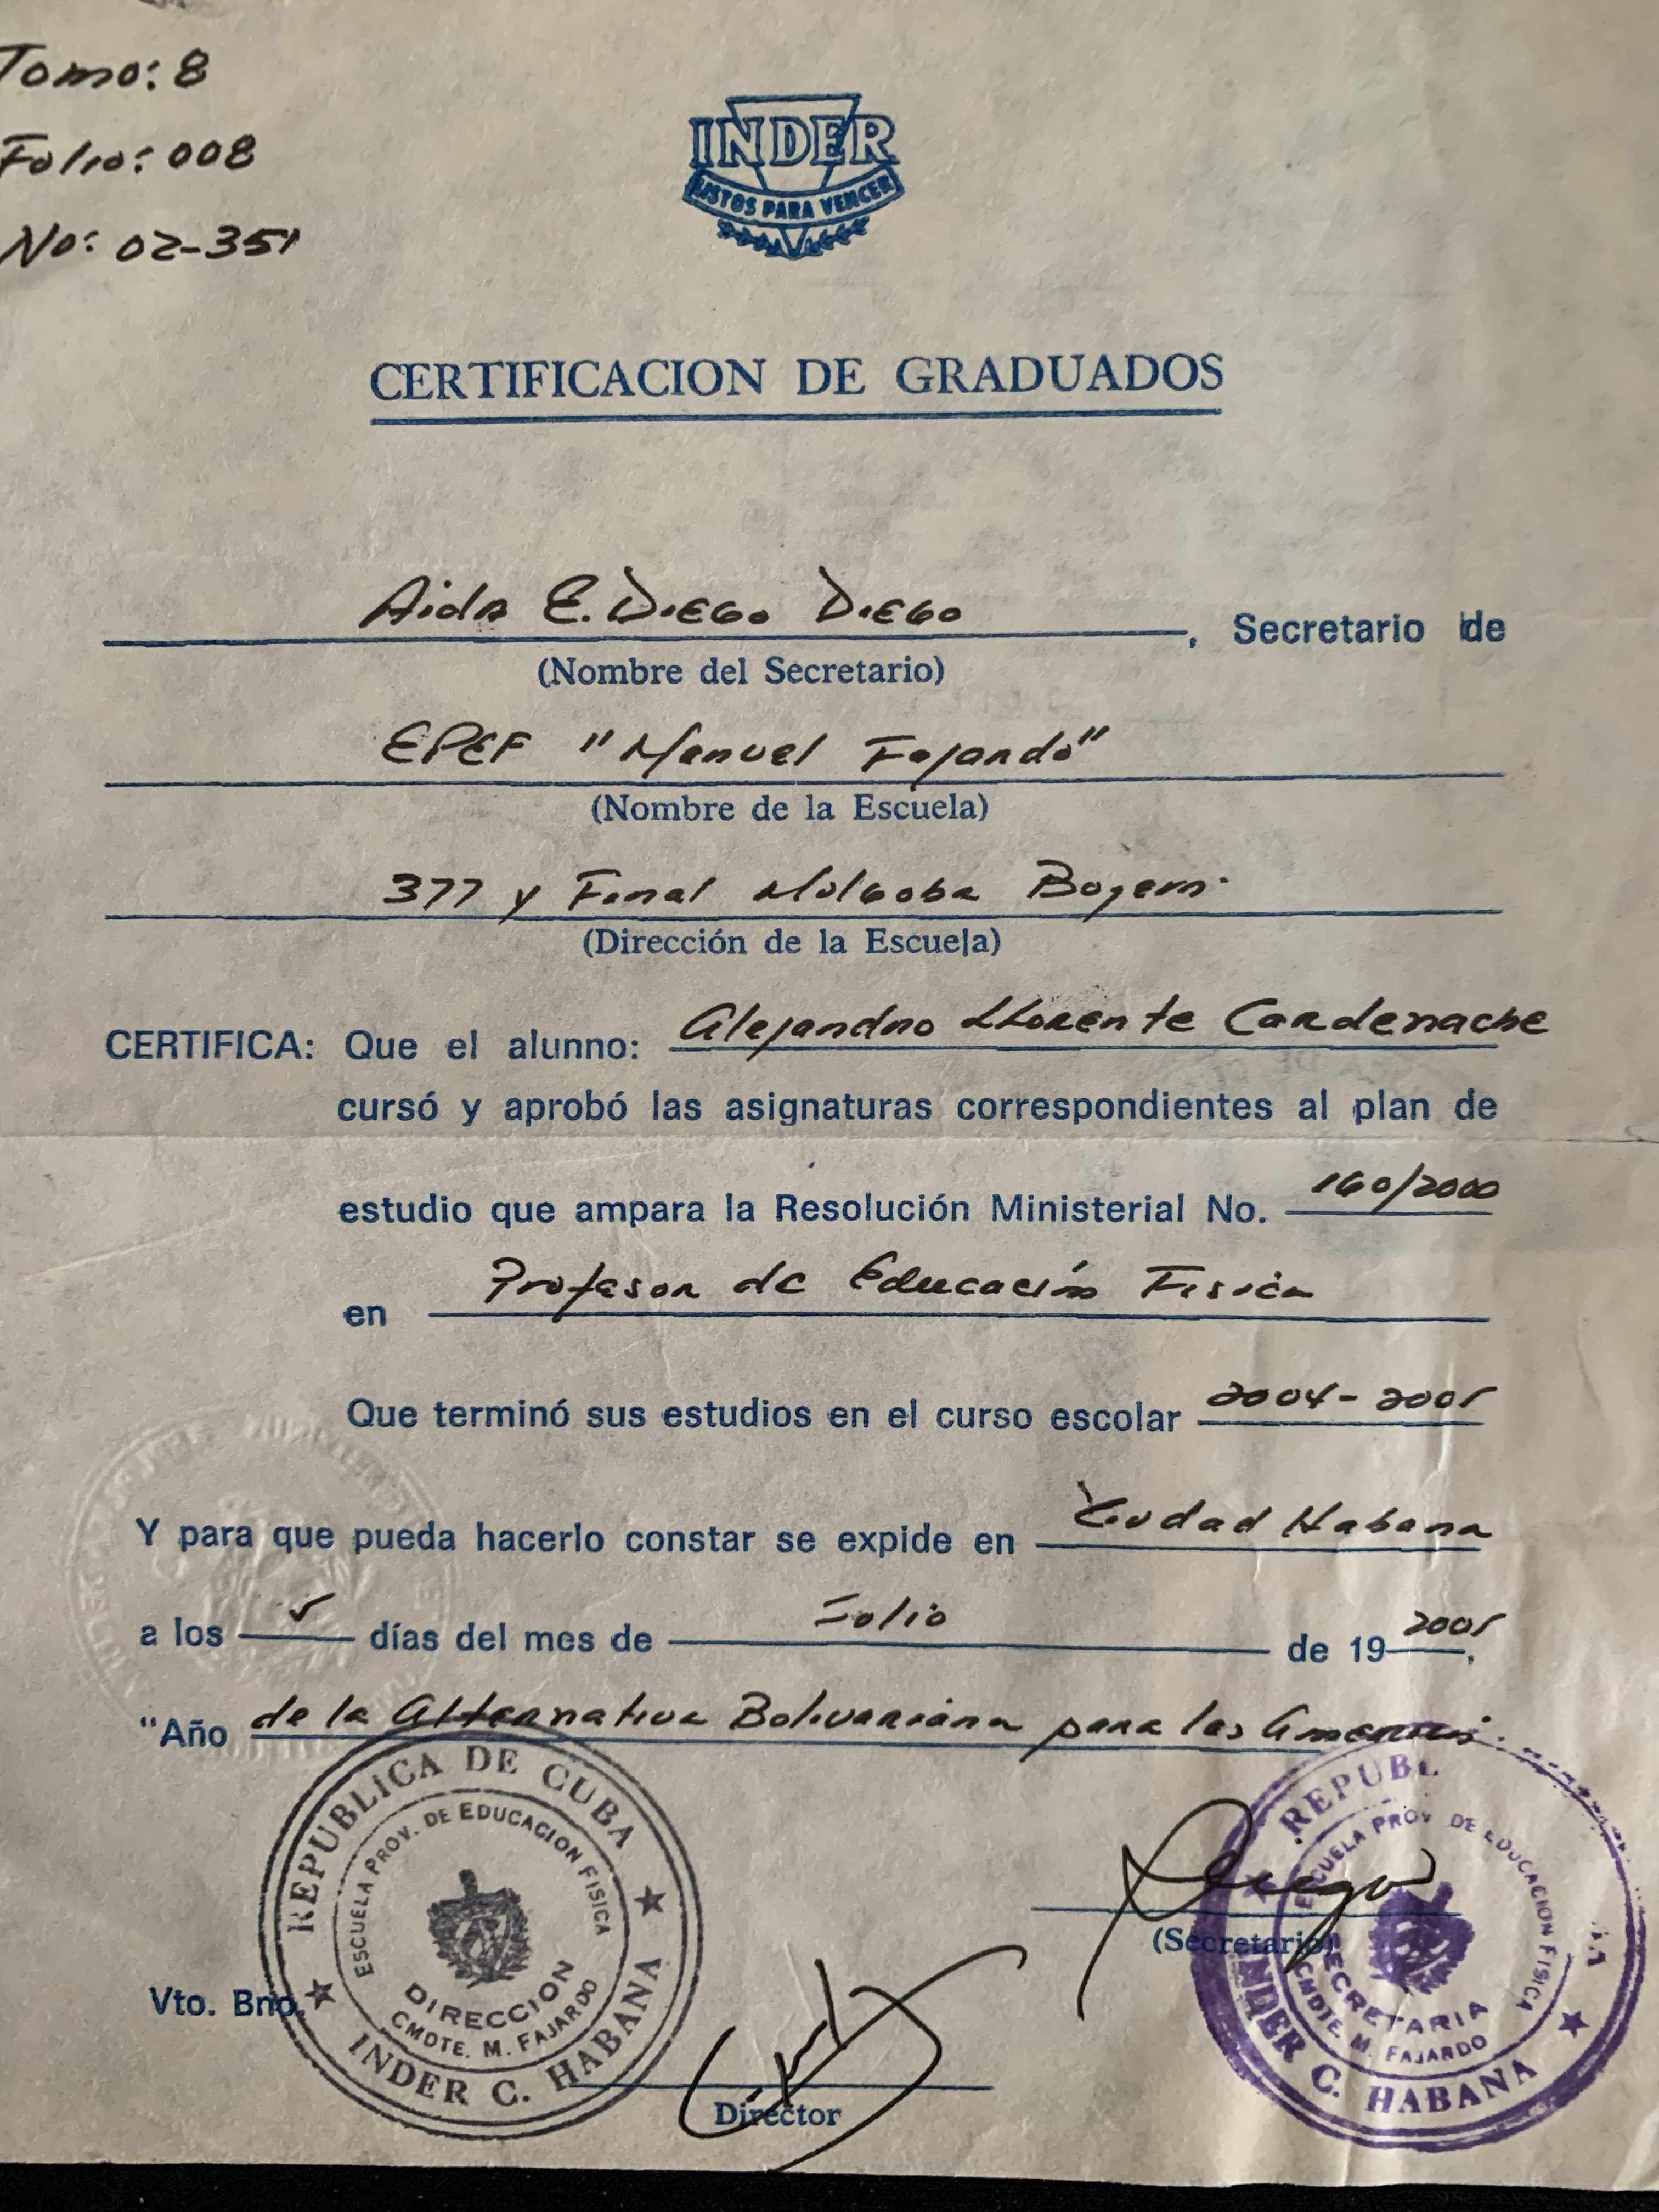 Tomo: 8
Folio: 008
No: 02-351
INDER
LISTOS PARA VENCER
CERTIFICACION DE GRADUADOS
Aida E. Diego Diego, Secretario de
(Nombre del Secretario)
EPEF "Manuel Fajardo"
(Nombre de la Escuela)
377 y Final Mulgoba Boyeros
(Dirección de la Escuela)
CERTIFICA: Que el alunno: Alejandro Llorente Cardenache
cursó y aprobó las asignaturas correspondientes al plan de
estudio que ampara la Resolución Ministerial No. 160/2000
en Profesor de Educación Fisica
Que terminó sus estudios en el curso escolar 2004-2005
Y para que pueda hacerlo constar se expide en Ciudad Habana
a los 5 días del mes de Julio de 19 2005,
"Año de la Alternativa Bolivariana para las Americas.
REPUBLICA DE CUBA
ESCUELA PROV. DE EDUCACION FISICA
DIRECCION
CMDTE. M. FAJARDO
INDER C. HABANA
REPUBL
ESCUELA PROV DE EDUCACION FISICA
SECRETARIA
CMDTE. M. FAJARDO
INDER C. HABANA
(Secretario)
Vto. Bno.
Director